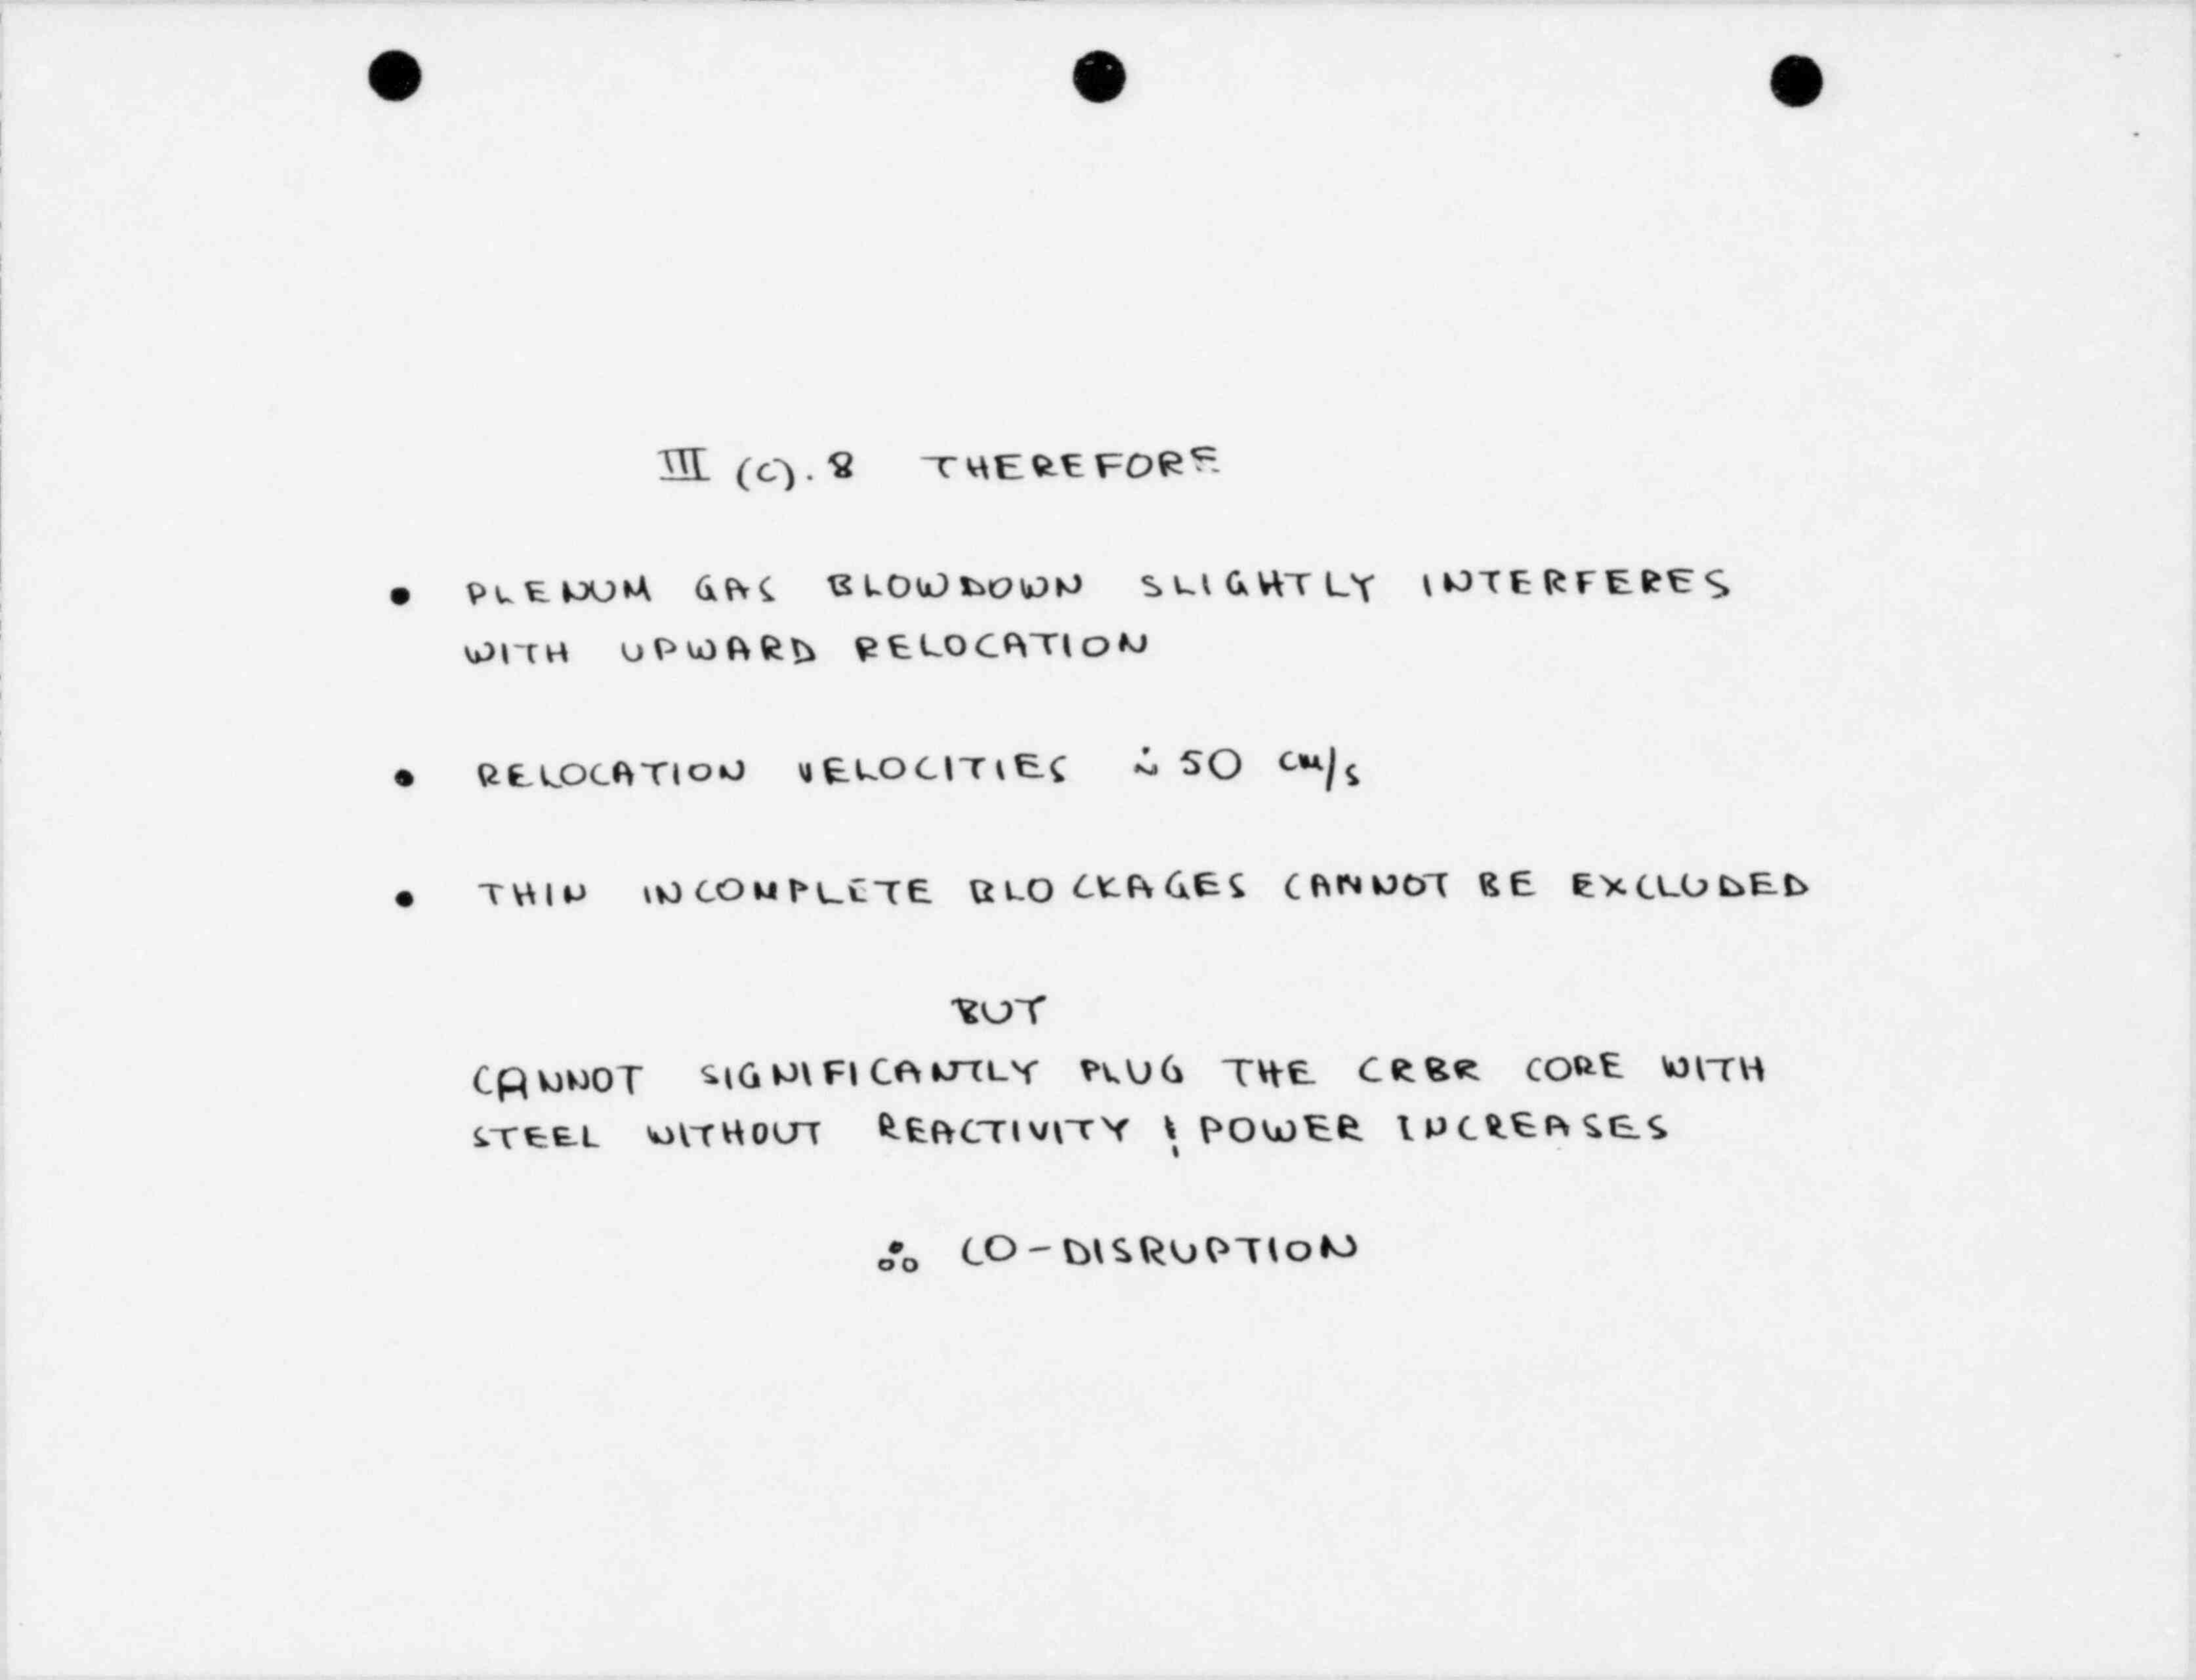 III (C).8 THEREFORE
• PLENUM GAS BLOWDOWN SLIGHTLY INTERFERES
WITH UPWARD RELOCATION
• RELOCATION VELOCITIES ∻ 50 cm/s
• THIN INCOMPLETE BLOCKAGES CANNOT BE EXCLUDED
BUT
CANNOT SIGNIFICANTLY PLUG THE CRBR CORE WITH
STEEL WITHOUT REACTIVITY & POWER INCREASES
∴ CO-DISRUPTION